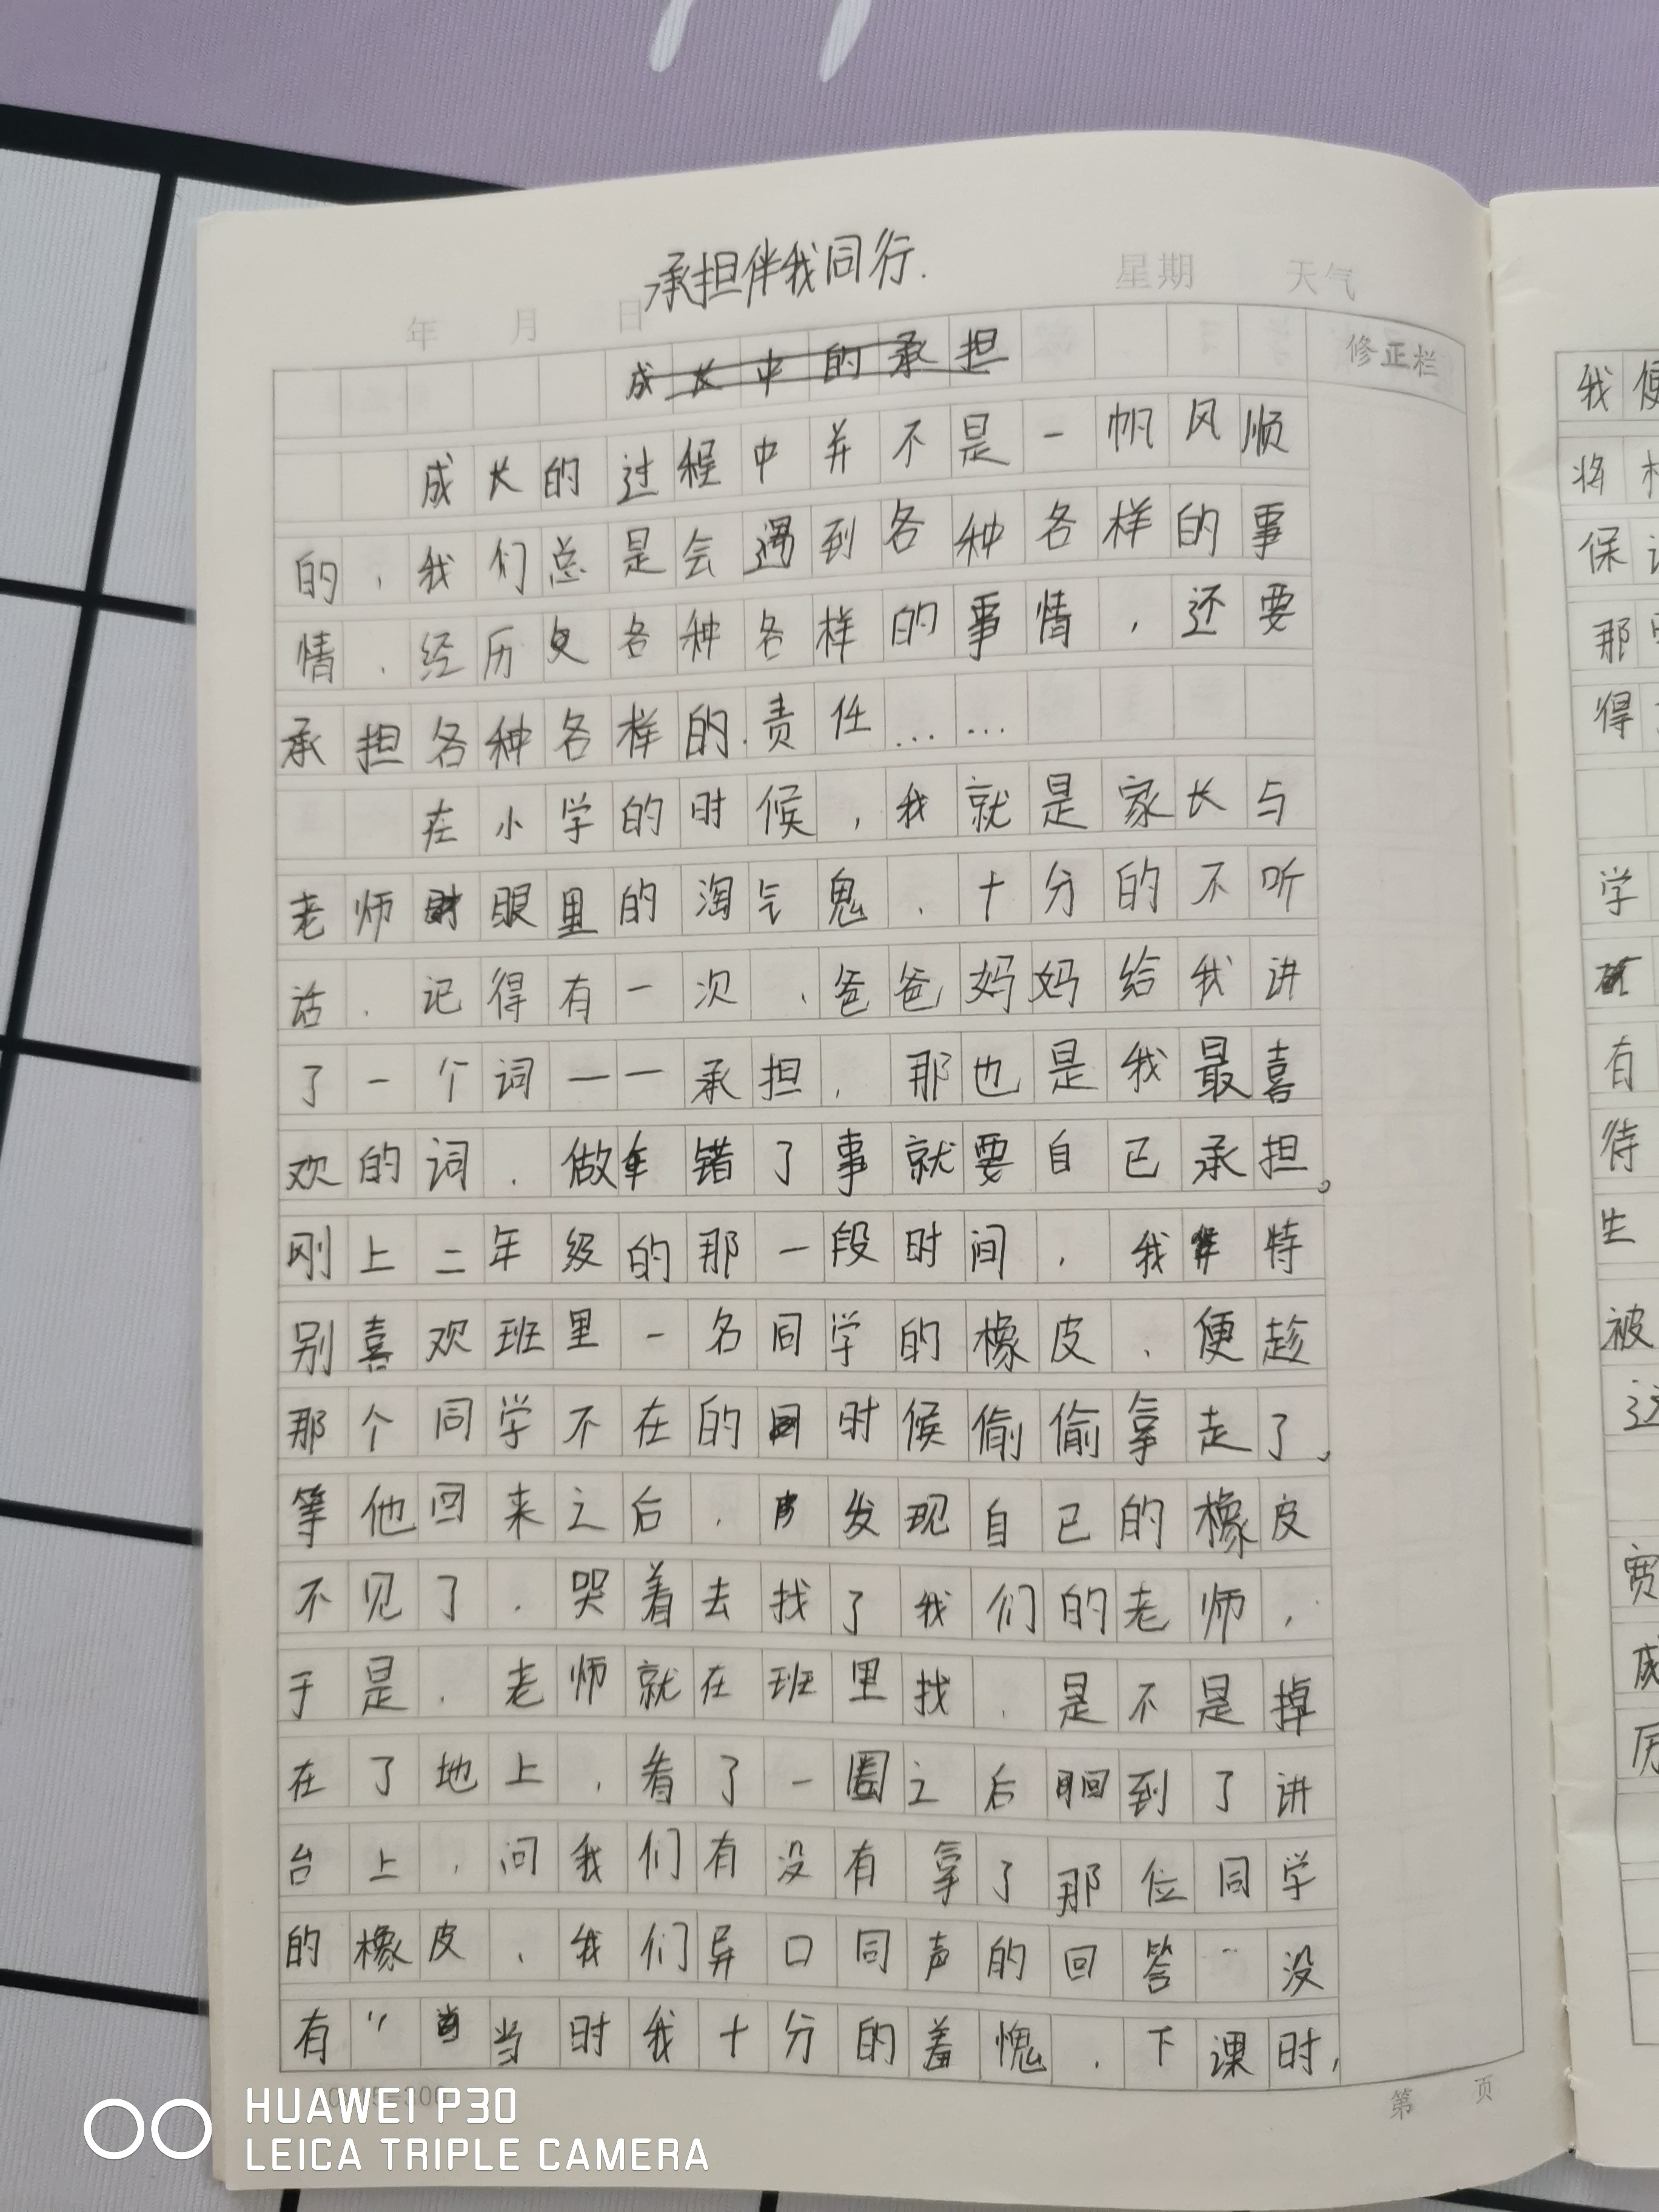 承担伴我同行.
年 月 日 星期 天气
成长中的承担
修正栏
成长的过程中并不是一帆风顺
的,我们总是会遇到各种各样的事
情,经历各种各样的事情,还要
承担各种各样的责任……
在小学的时候,我就是家长与
老师眼里的淘气鬼,十分的不听
话,记得有一次,爸爸妈妈给我讲
了一个词——承担,那也是我最喜
欢的词.做错了事就要自己承担。
刚上二年级的那一段时间,我特
别喜欢班里一名同学的橡皮,便趁
那个同学不在的时候偷偷拿走了。
等他回来之后,发现自己的橡皮
不见了,哭着去找了我们的老师,
于是,老师就在班里找,是不是掉
在了地上,看了一圈之后回到了讲
台上,问我们有没有拿了那位同学
的橡皮,我们异口同声的回答“没
有”当时我十分的羞愧,下课时,
第 页
我便
将
保
那
得
学
有
待
生
被
这
宽
成
历
HUAWEI P30
LEICA TRIPLE CAMERA